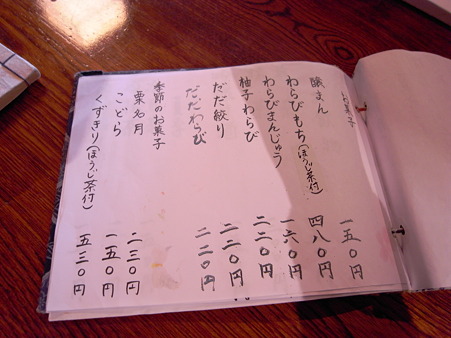 お菓子
醸まん 一五〇円
わらびもち(ほうじ茶付) 四八〇円
わらびまんじゅう 一六〇円
柚子わらび 二二〇円
だだ絞り 二二〇円
だだわらび 二二〇円
季節のお菓子
栗名月 二三〇円
こどら 一五〇円
くずきり(ほうじ茶付) 五三〇円